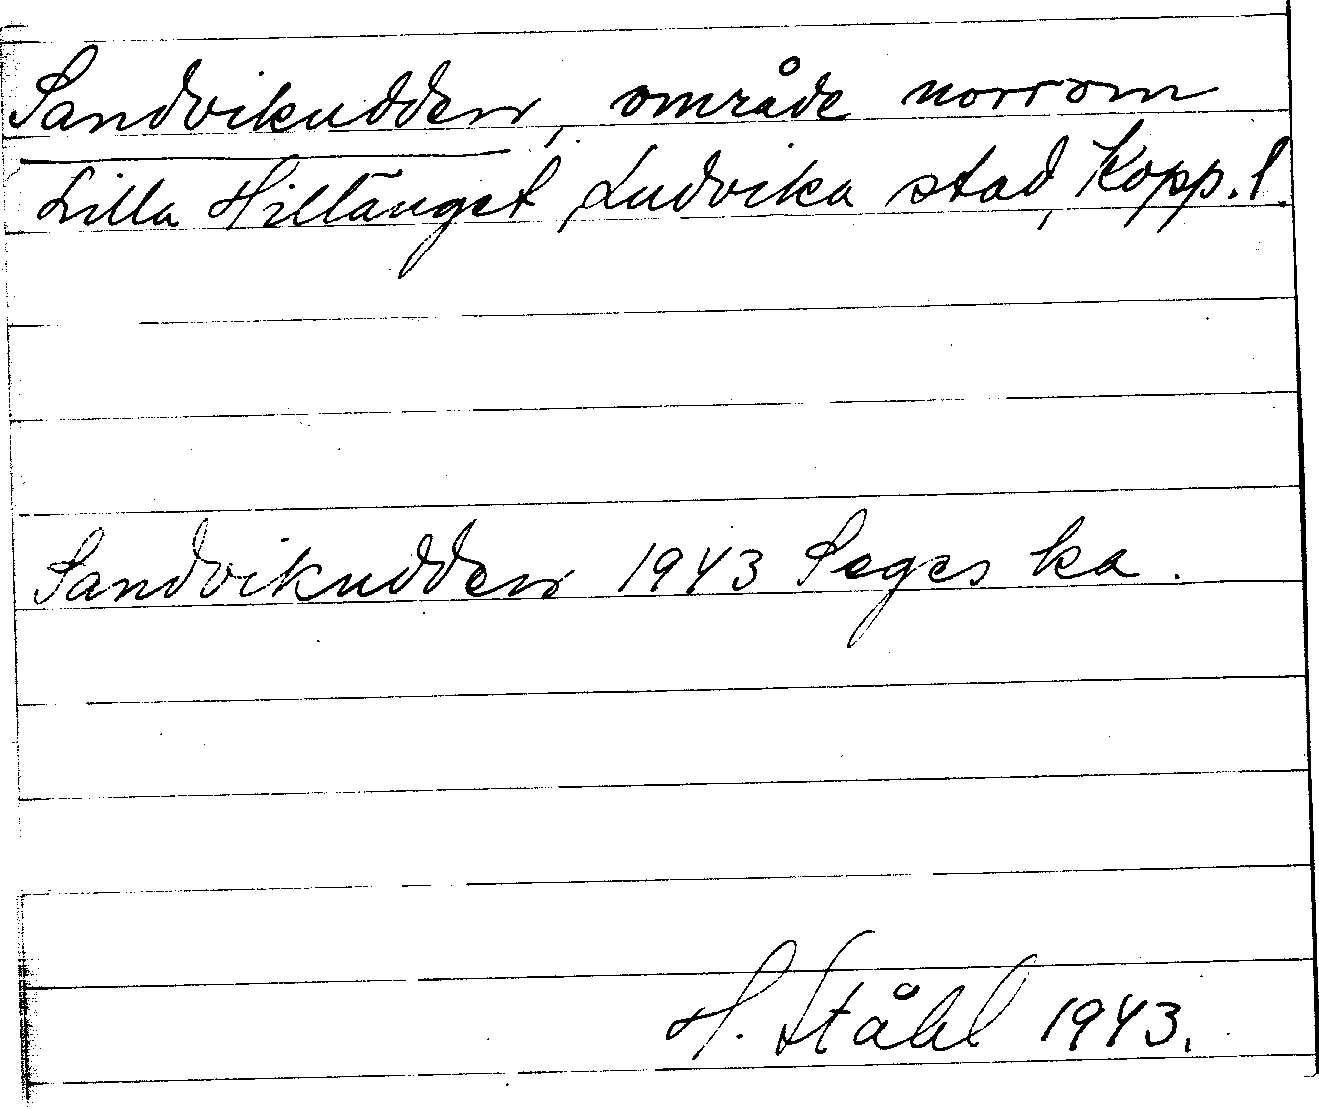 Sandvikudden, område norr om
Lilla Hillänget, Ludvika stad, Kopp. l.
Sandvikudden 1943 Seges ka.
H. Ståhl 1943.